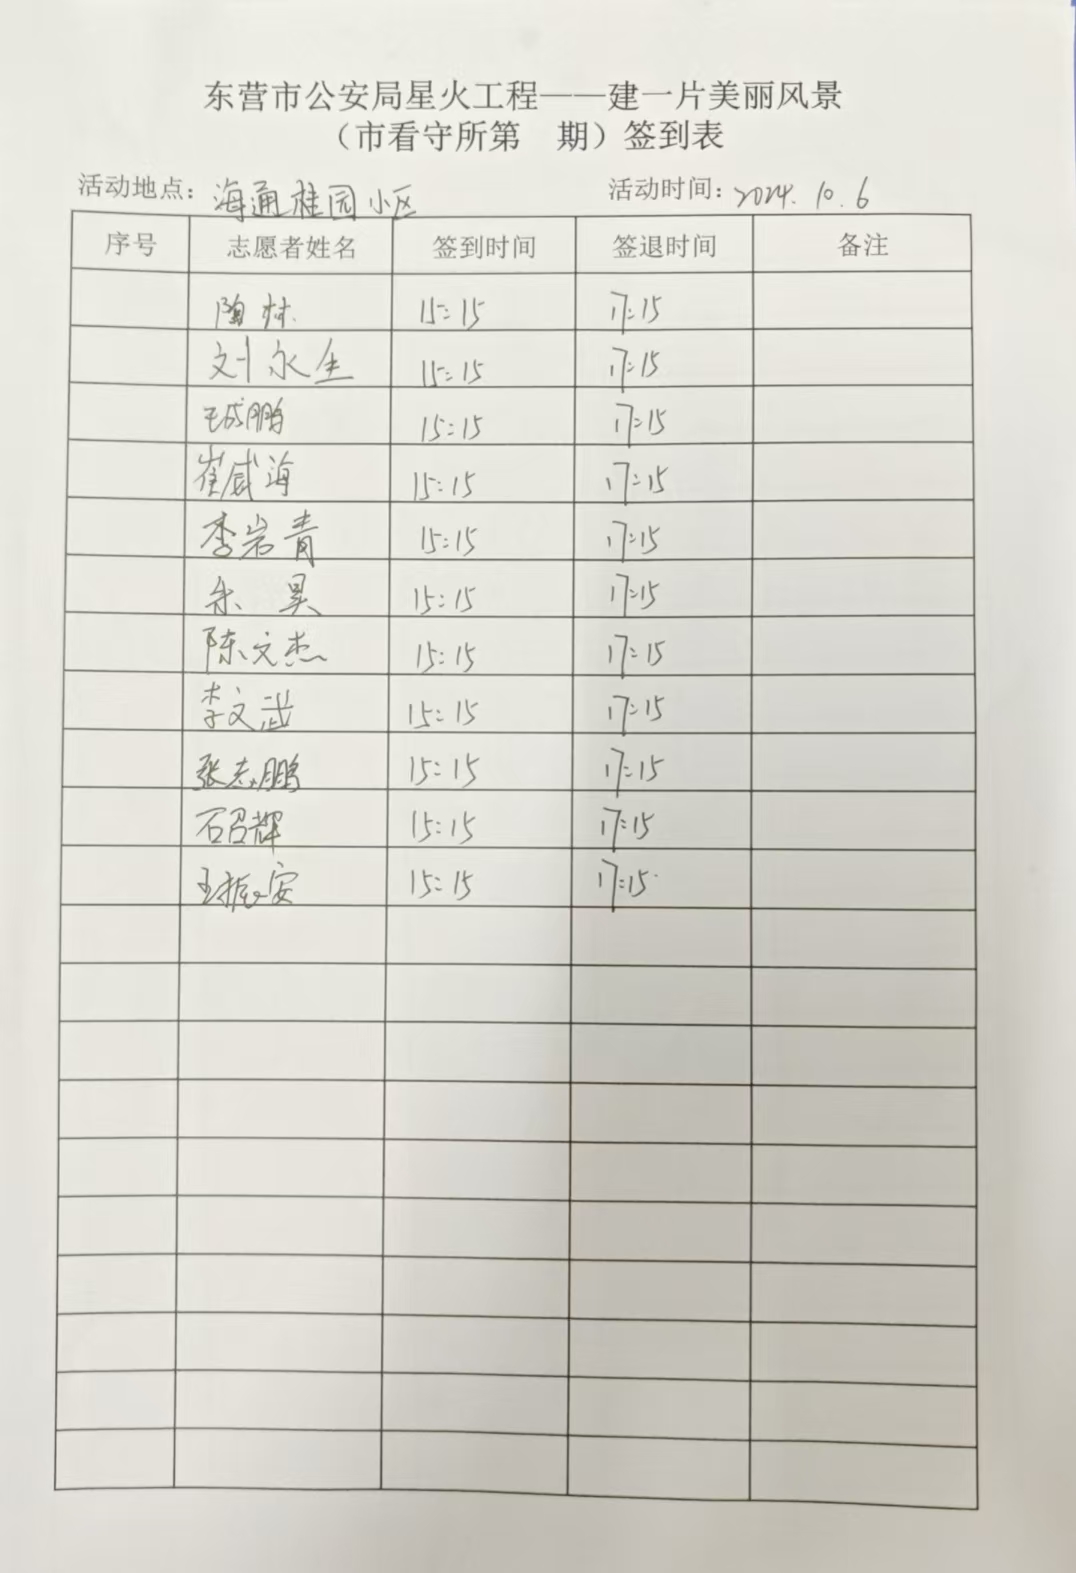 东营市公安局星火工程——建一片美丽风景
（市看守所第 期）签到表
活动地点：海通桂园小区 活动时间：2024.10.6
序号 志愿者姓名 签到时间 签退时间 备注
陶林 15:15 17:15
刘永生 15:15 17:15
王成鹏 15:15 17:15
崔威海 15:15 17:15
李岩青 15:15 17:15
昊 15:15 17:15
陈文杰 15:15 17:15
李文武 15:15 17:15
张志鹏 15:15 17:15
石召辉 15:15 17:15
王振安 15:15 17:15